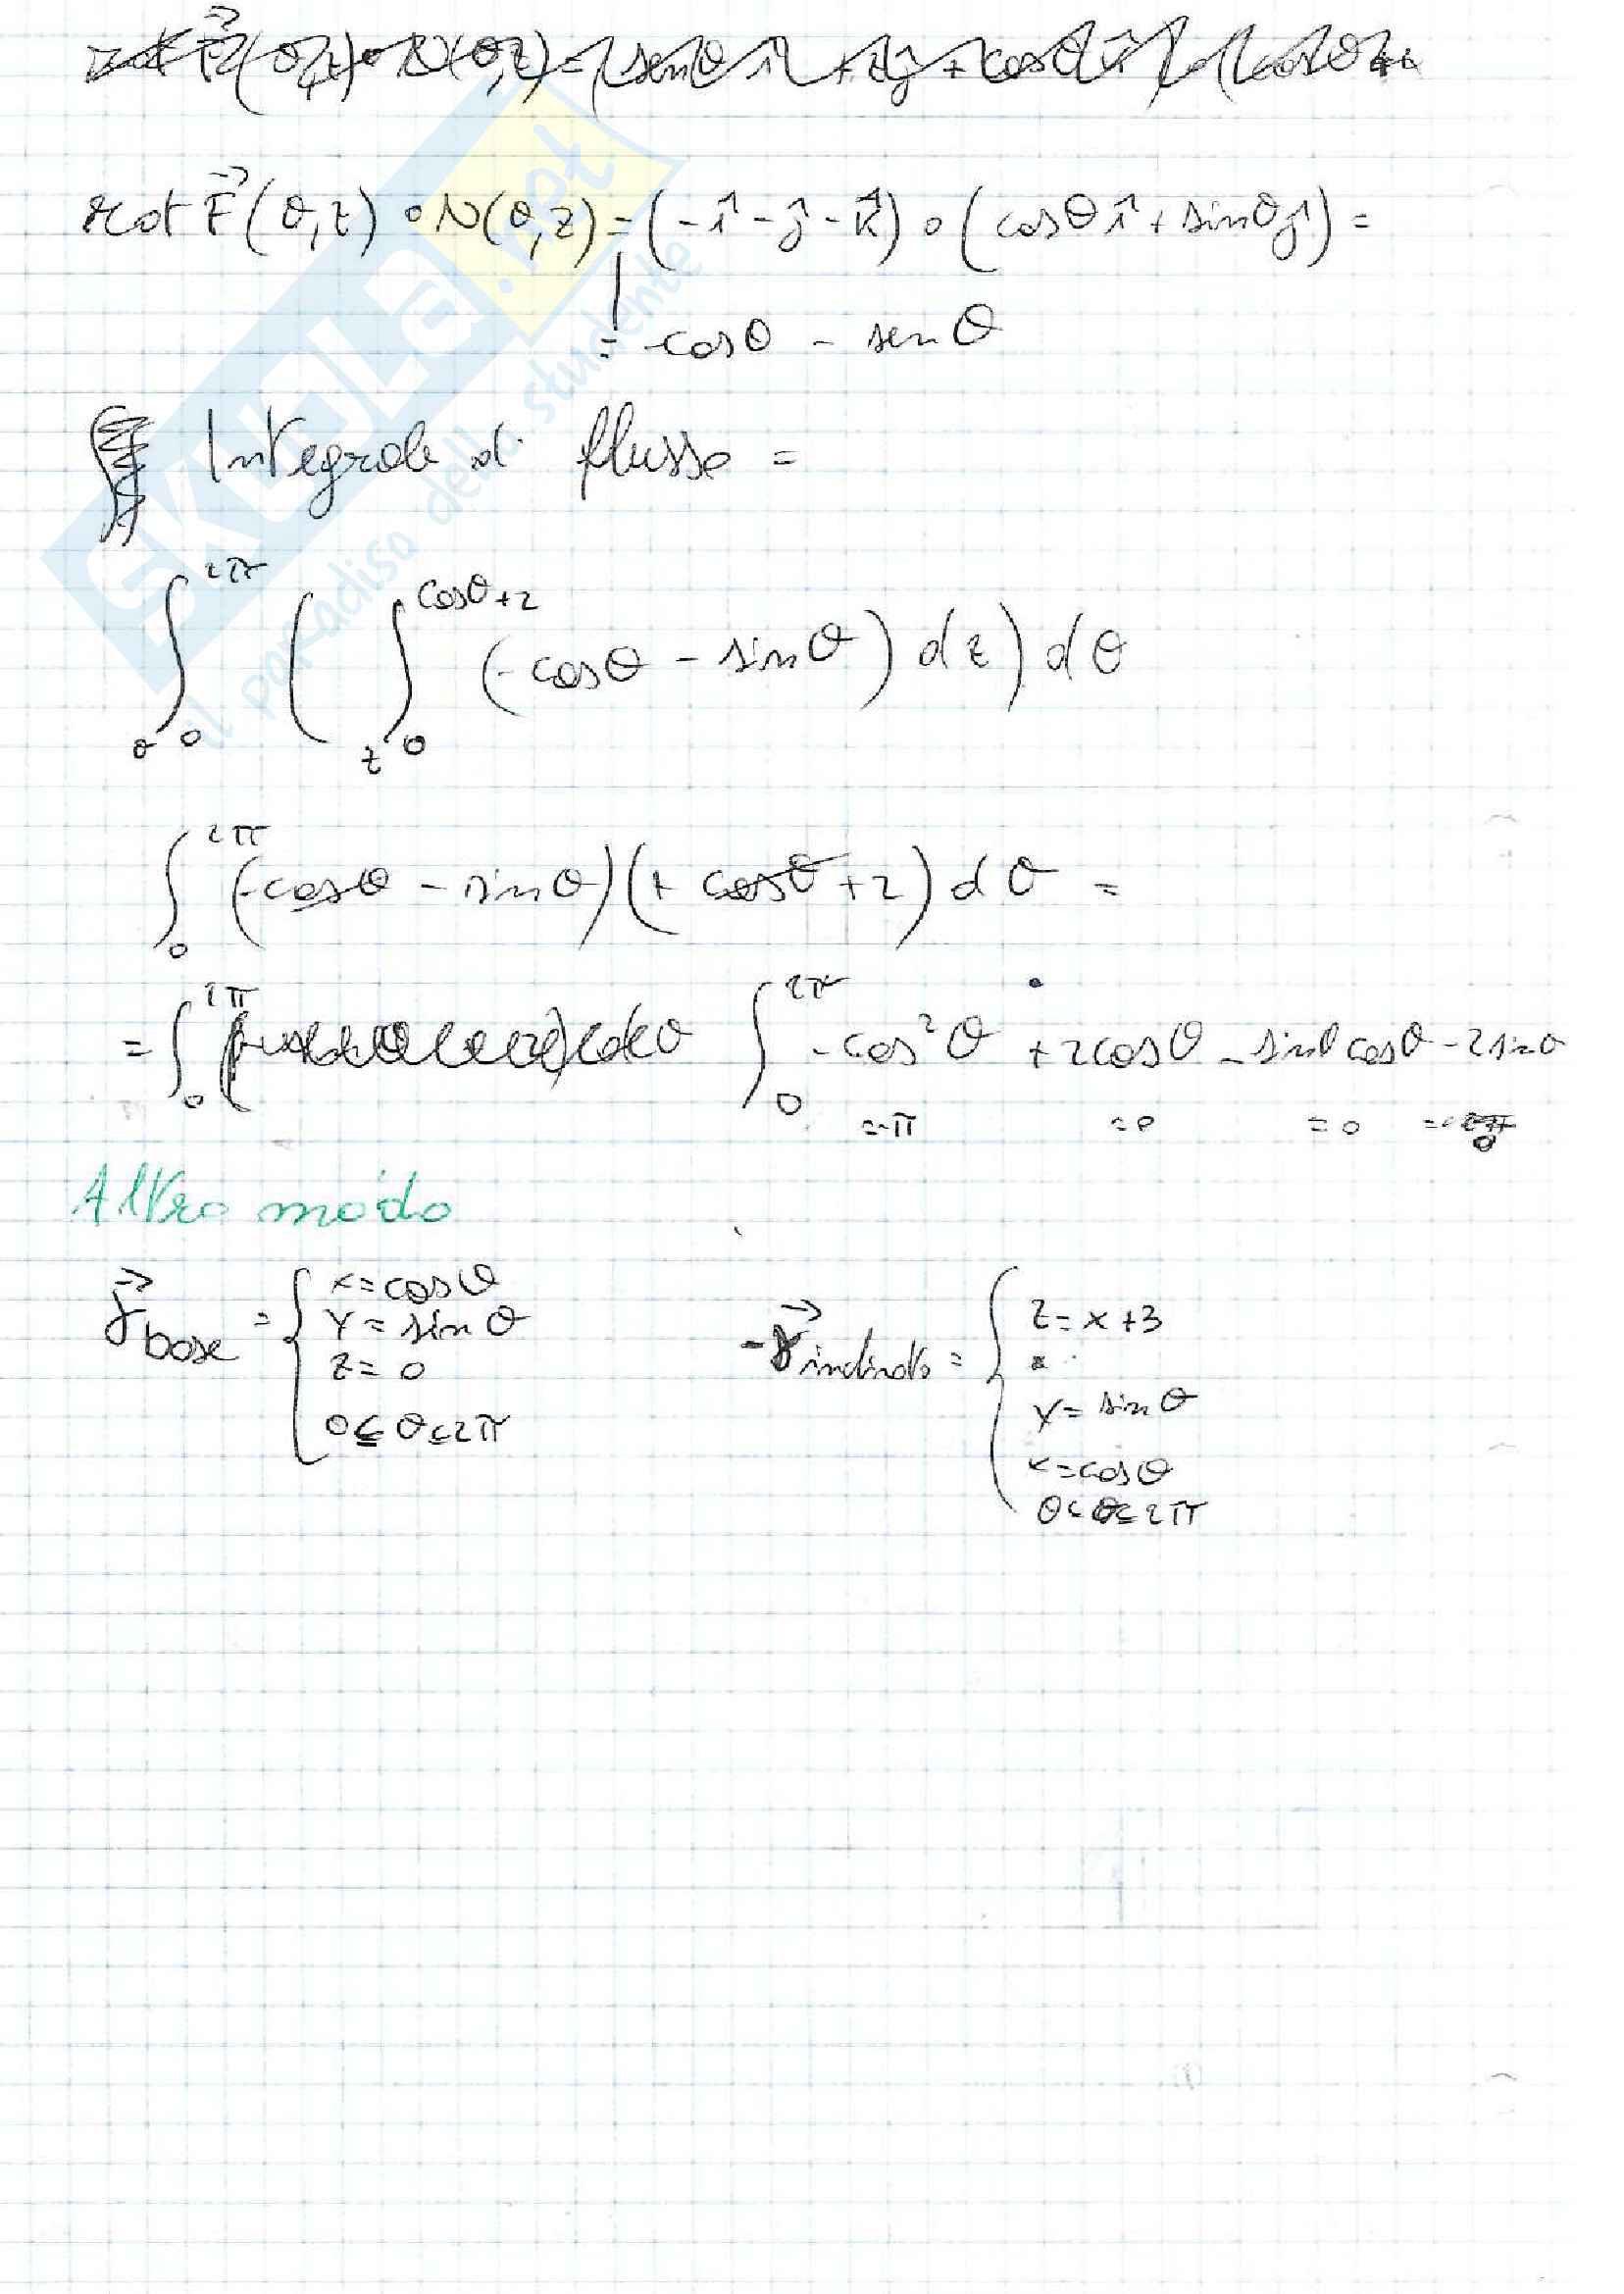 rot F⃗(θ,z) ∘ N(θ,z) = (-î - ĵ - k̂) ∘ (cosθ î + sinθ ĵ) =
= -cosθ - senθ
Integrale di flusso =
∫₀^2π ( ∫₀^cosθ+2 (-cosθ - sinθ) dz ) dθ
θ z
∫₀^2π (-cosθ - sinθ)(+ cosθ + 2) dθ =
= ∫₀^2π ∫₀^2π -cos²θ + 2cosθ - sinθ cosθ - 2sinθ
=-π =0 =0 = 0
Altro modo
γ⃗ base = { x = cosθ
y = sinθ
z = 0
0 ≤ θ ≤ 2π
-γ⃗ inclinato = { z = x + 3
y = sinθ
x = cosθ
0 ≤ θ ≤ 2π
SKUOLA.net
il paradiso dello studente